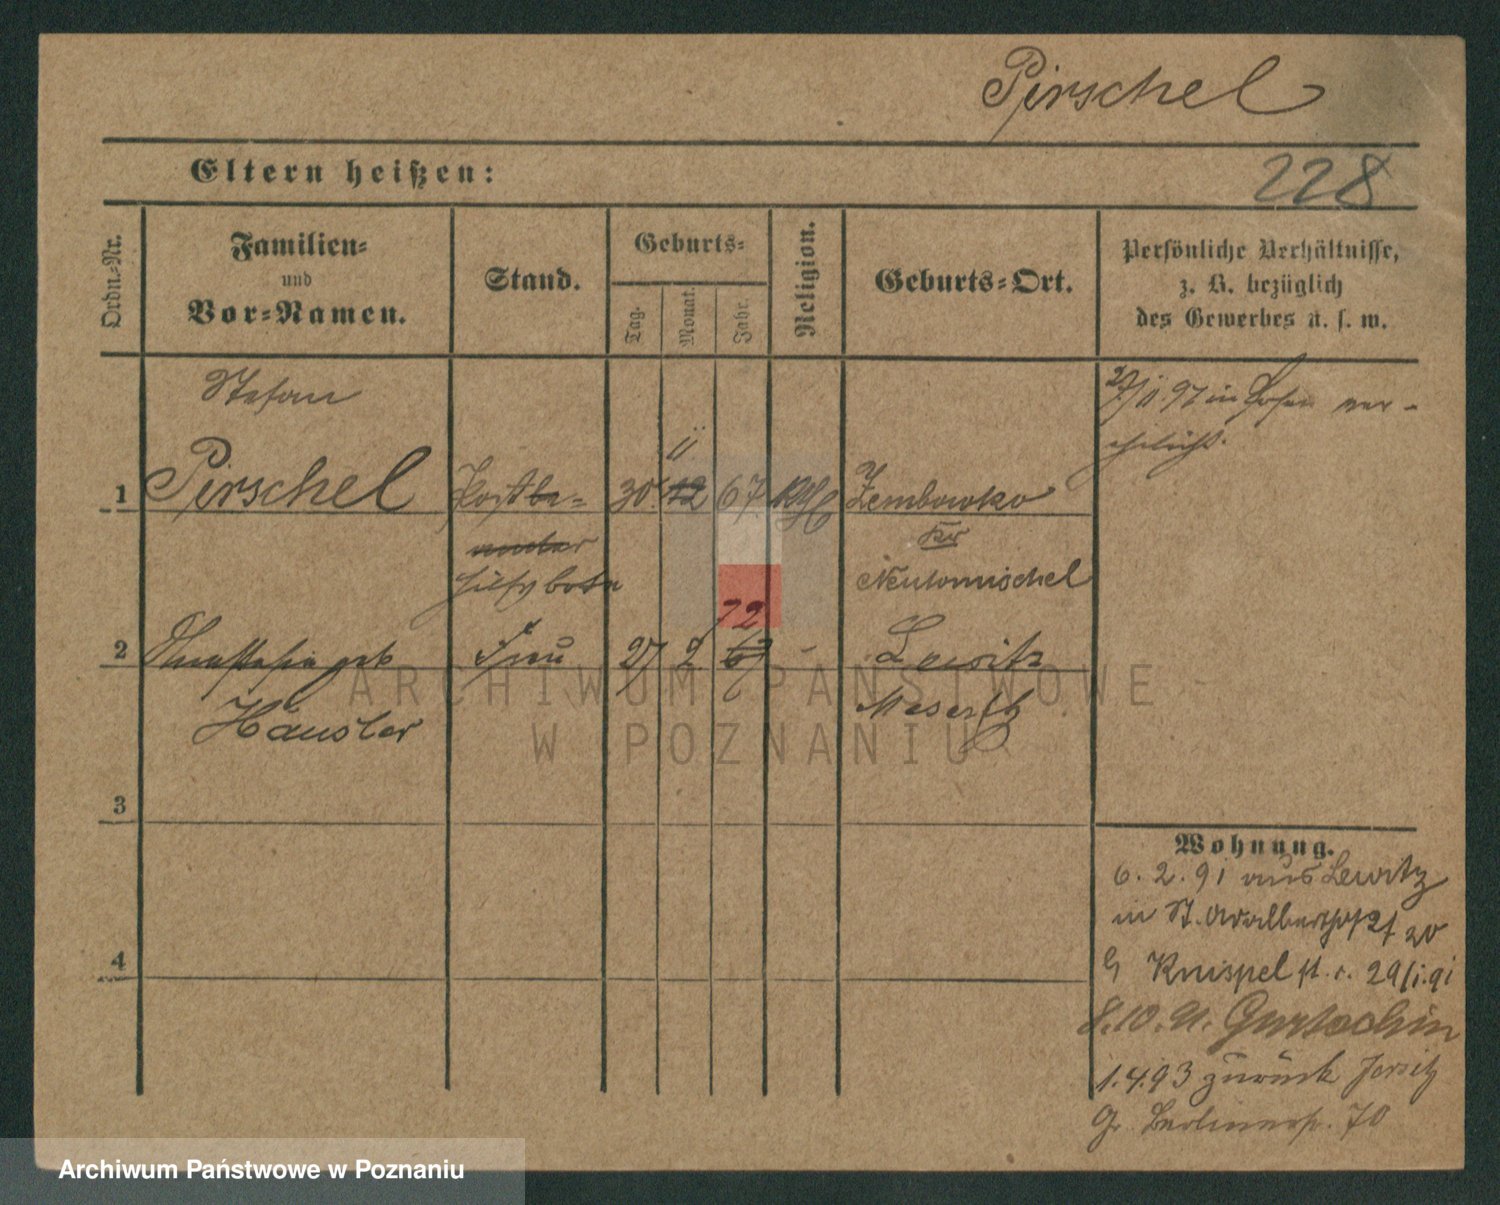 Pirschel
Eltern heißen:
228
Ordn.-Nr.
Familien-
und
Vor-Namen.
Stand.
Geburts-
Tag.
Monat.
Jahr.
Religion.
Geburts-Ort.
Persönliche Verhältnisse,
z. B. bezüglich
des Gewerbes u. s. w.
Stefan
27/11 97 in Posen ver-
ehelicht.
11
1 Pirschel Postbe- 30. 12 67. kath Zembowko
Kr
Neutomischel
hilfsbote
72
2 geb Frau 27 2 63 - Lewitz
Häusler Meseritz
3
4
Wohnung.
6. 2. 91 aus Lewitz
in St. Adalbertstr 21 20
b Knispel st. r. 29/1. 91
8.10.91. Gurtschin
1.4.93 zurück Jersitz
Gr. Berlinerstr. 70
ARCHIWUM PAŃSTWOWE
W POZNANIU
Archiwum Państwowe w Poznaniu